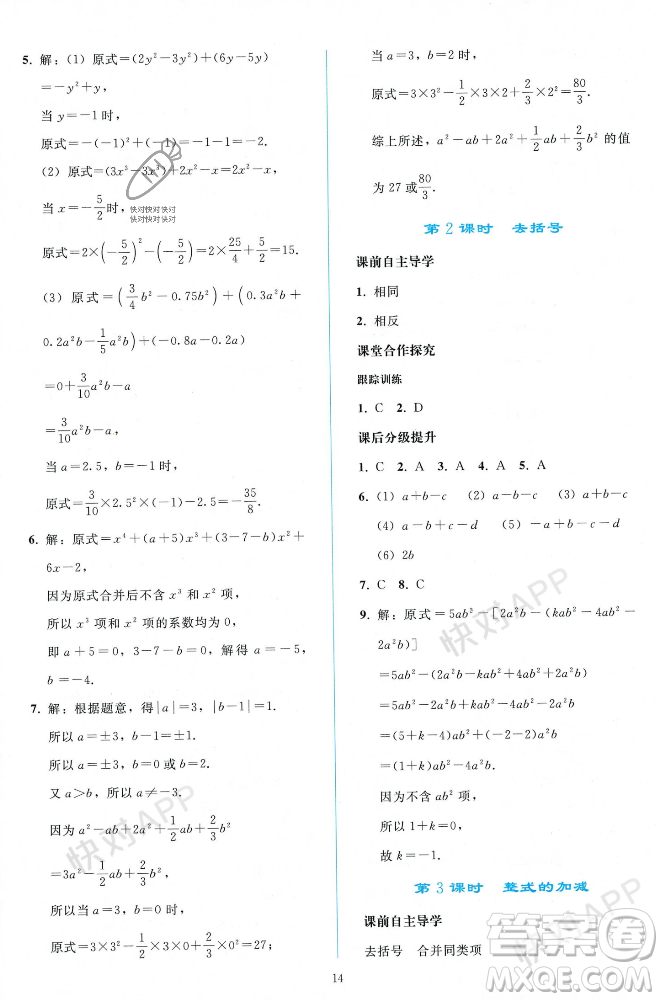 5. 解：(1) 原式＝(2y²－3y²)＋(6y－5y)
＝－y²＋y，
当 y＝－1 时，
原式＝－(－1)²＋(－1)＝－1－1＝－2.
(2) 原式＝(3x³－3x³)＋2x²－x＝2x²－x，
当 x＝－5/2 时，
快对快对快对
快对快对快对
原式＝2×(－5/2)²－(－5/2)＝2×25/4＋5/2＝15.
(3) 原式＝(3/4 b²－0.75b²)＋(0.3a²b＋
0.2a²b－1/5 a²b)＋(－0.8a－0.2a)
＝0＋3/10 a²b－a
＝3/10 a²b－a，
当 a＝2.5，b＝－1 时，
原式＝3/10×2.5²×(－1)－2.5＝－35/8.
6. 解：原式＝x⁴＋(a＋5)x³＋(3－7－b)x²＋
6x－2，
因为原式合并后不含 x³ 和 x² 项，
所以 x³ 项和 x² 项的系数均为 0，
即 a＋5＝0，3－7－b＝0，解得 a＝－5，
b＝－4.
7. 解：根据题意，得|a|＝3，|b－1|＝1.
所以 a＝±3，b－1＝±1.
所以 a＝±3，b＝0 或 b＝2.
又 a＞b，所以 a＝－3 舍去.
因为 a²－1/2 ab＋2a²＋2/3 b²
＝3a²－1/2 ab＋2/3 b²，
所以当 a＝3，b＝0 时，
原式＝3×3²－1/2×3×0＋2/3×0²＝27；
当 a＝3，b＝2 时，
原式＝3×3²－1/2×3×2＋2/3×2²＝80/3.
综上所述，a²－1/2 ab＋2a²＋2/3 b² 的值
为 27 或 80/3.
第 2 课时 去括号
课前自主导学
1. 相同
2. 相反
课堂合作探究
跟踪训练
1. C 2. D
课后分级提升
1. C 2. A 3. A 4. A 5. A
6. (1) a＋b－c (2) a－b＋c (3) a＋b－c
(4) a－b＋c－d (5) －a＋b＋c－d
(6) 2b
7. C 8. C
9. 解：原式＝5ab²－[2a²b－(kab²－4ab²－
2a²b)]
＝5ab²－(2a²b－kab²＋4ab²＋2a²b)
＝5ab²－2a²b＋kab²－4ab²－2a²b
＝(5＋k－4)ab²－(2＋2)a²b
＝(1＋k)ab²－4a²b.
因为不含 ab² 项，
所以 1＋k＝0，
故 k＝－1.
第 3 课时 整式的加减
课前自主导学
去括号 合并同类项
14
快对APP
快对APP
快对APP
快对APP
答案圈
MXQE.COM